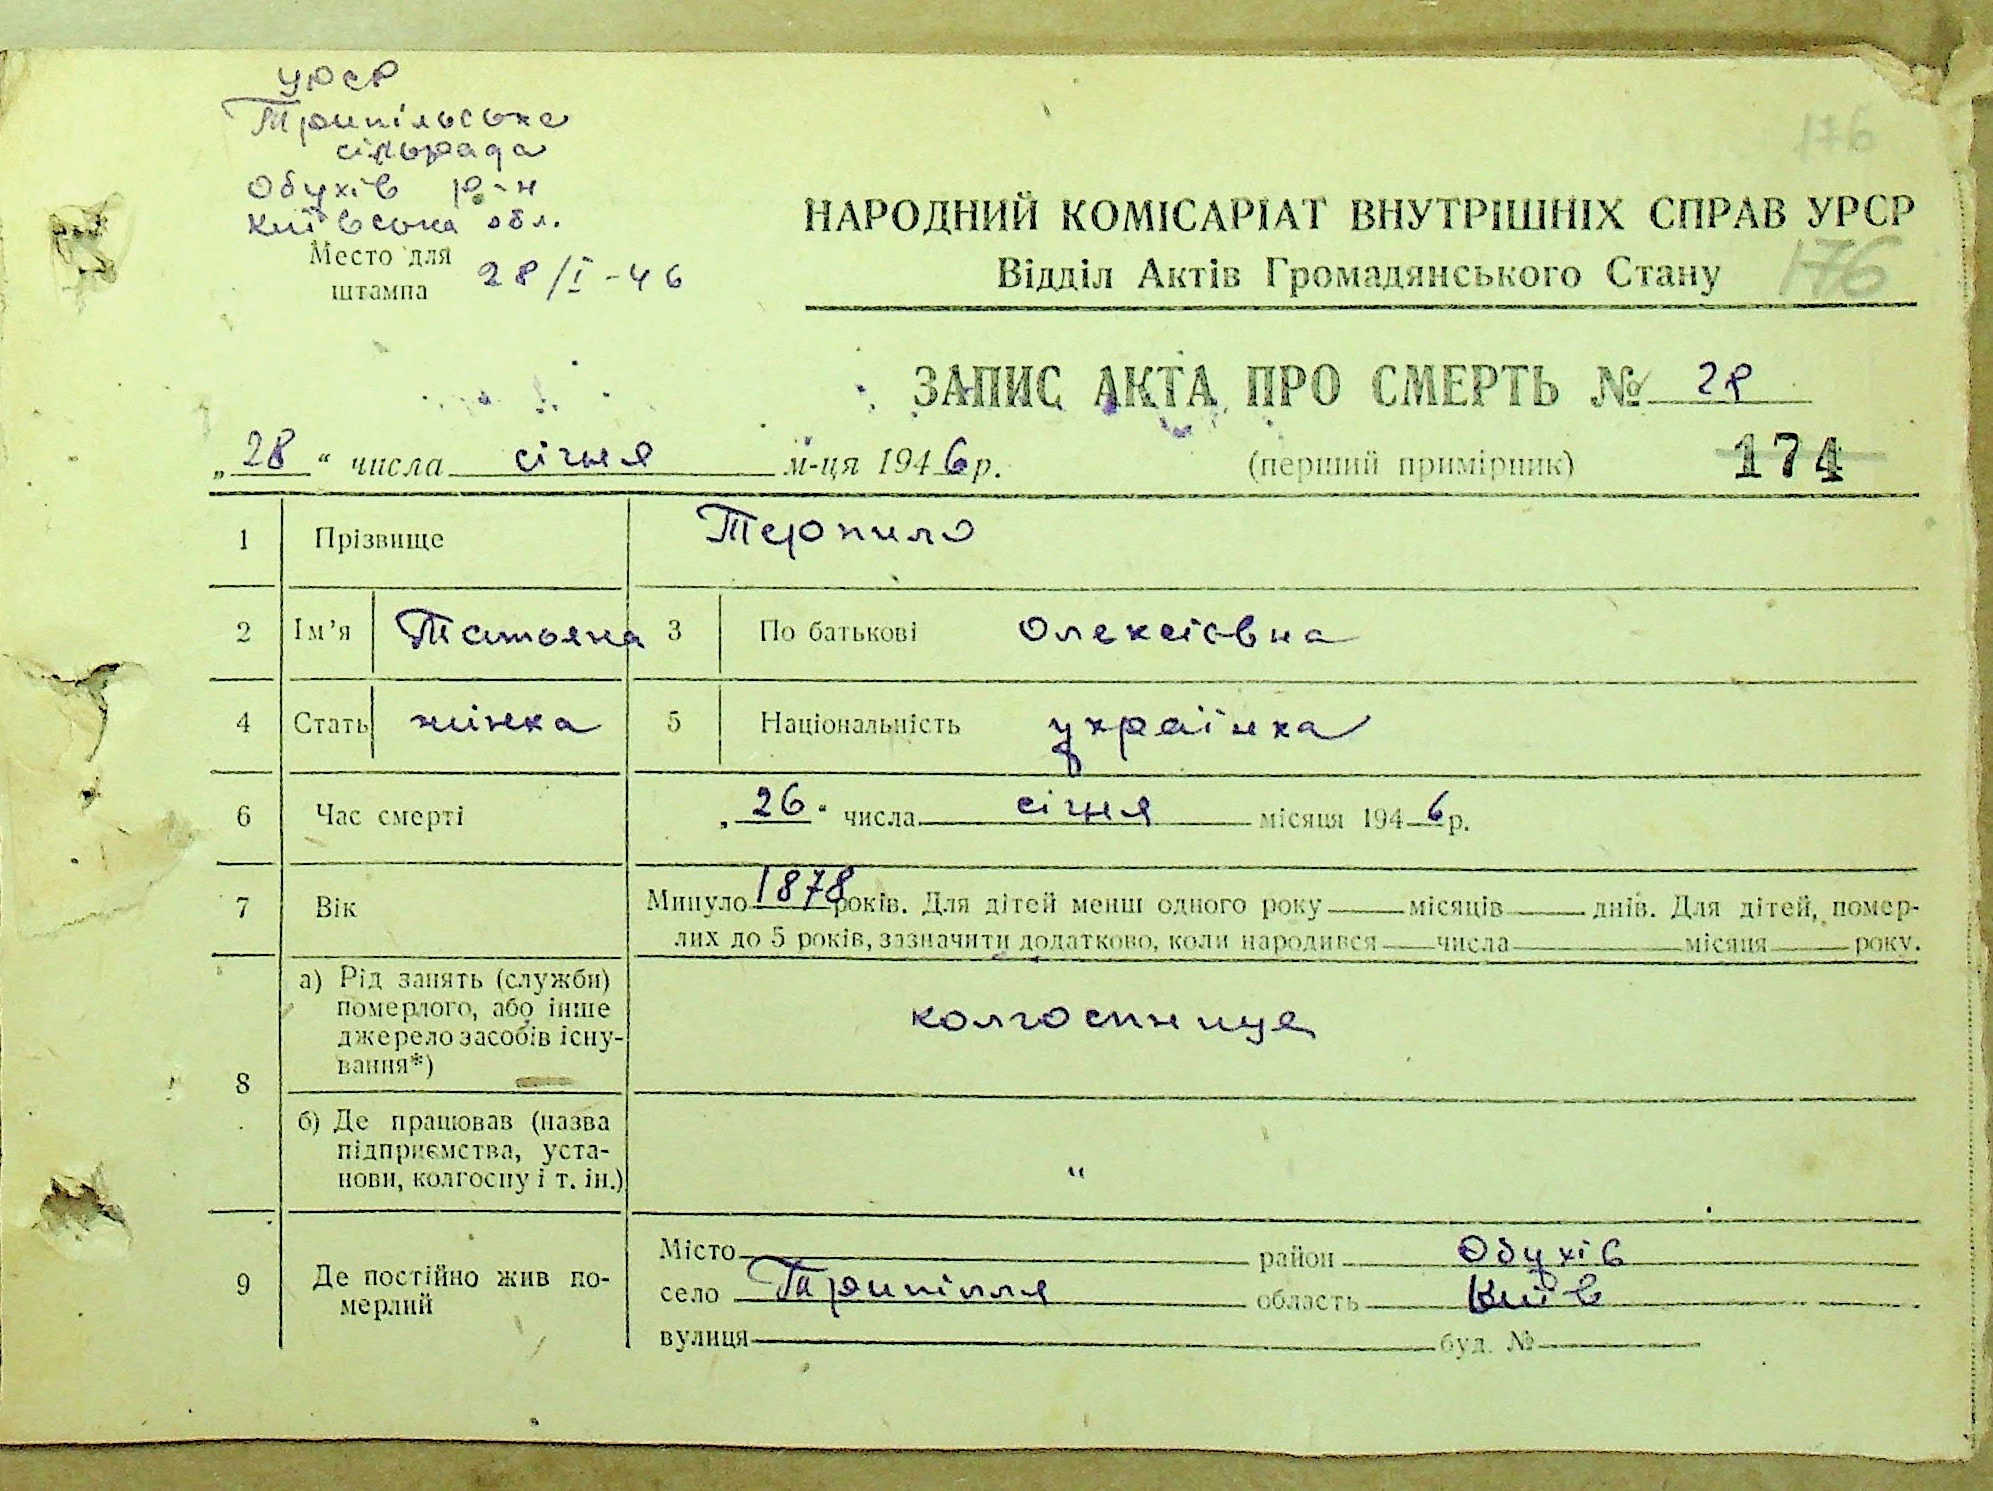 УРСР
Трипільська
сільрада
Обухів р-н
Київська обл.
Место для
штампа
28/I-46
176
НАРОДНИЙ КОМІСАРІАТ ВНУТРІШНІХ СПРАВ УРСР
Відділ Актів Громадянського Стану
176
ЗАПИС АКТА ПРО СМЕРТЬ № 28
„28“ числа січня м-ця 1946 р.
(перший примірник)
174
1 Прізвище Терпило
2 Ім’я Татьяна 3 По батькові Олексієвна
4 Стать жінка 5 Національність українка
6 Час смерті „26“ числа січня місяця 1946 р.
7 Вік Минуло 1878 років. Для дітей менш одного року місяців днів. Для дітей, помер-
лих до 5 років, зазначити додатково, коли народився числа місяця року.
8 а) Рід занять (служби)
померлого, або інше
джерело засобів існу-
вання*)
колгоспниця
б) Де працював (назва
підприємства, уста-
нови, колгоспу і т. ін.)
"
9 Де постійно жив по-
мерлий
Місто район Обухів
село Трипілля область Київ
вулиця буд. №